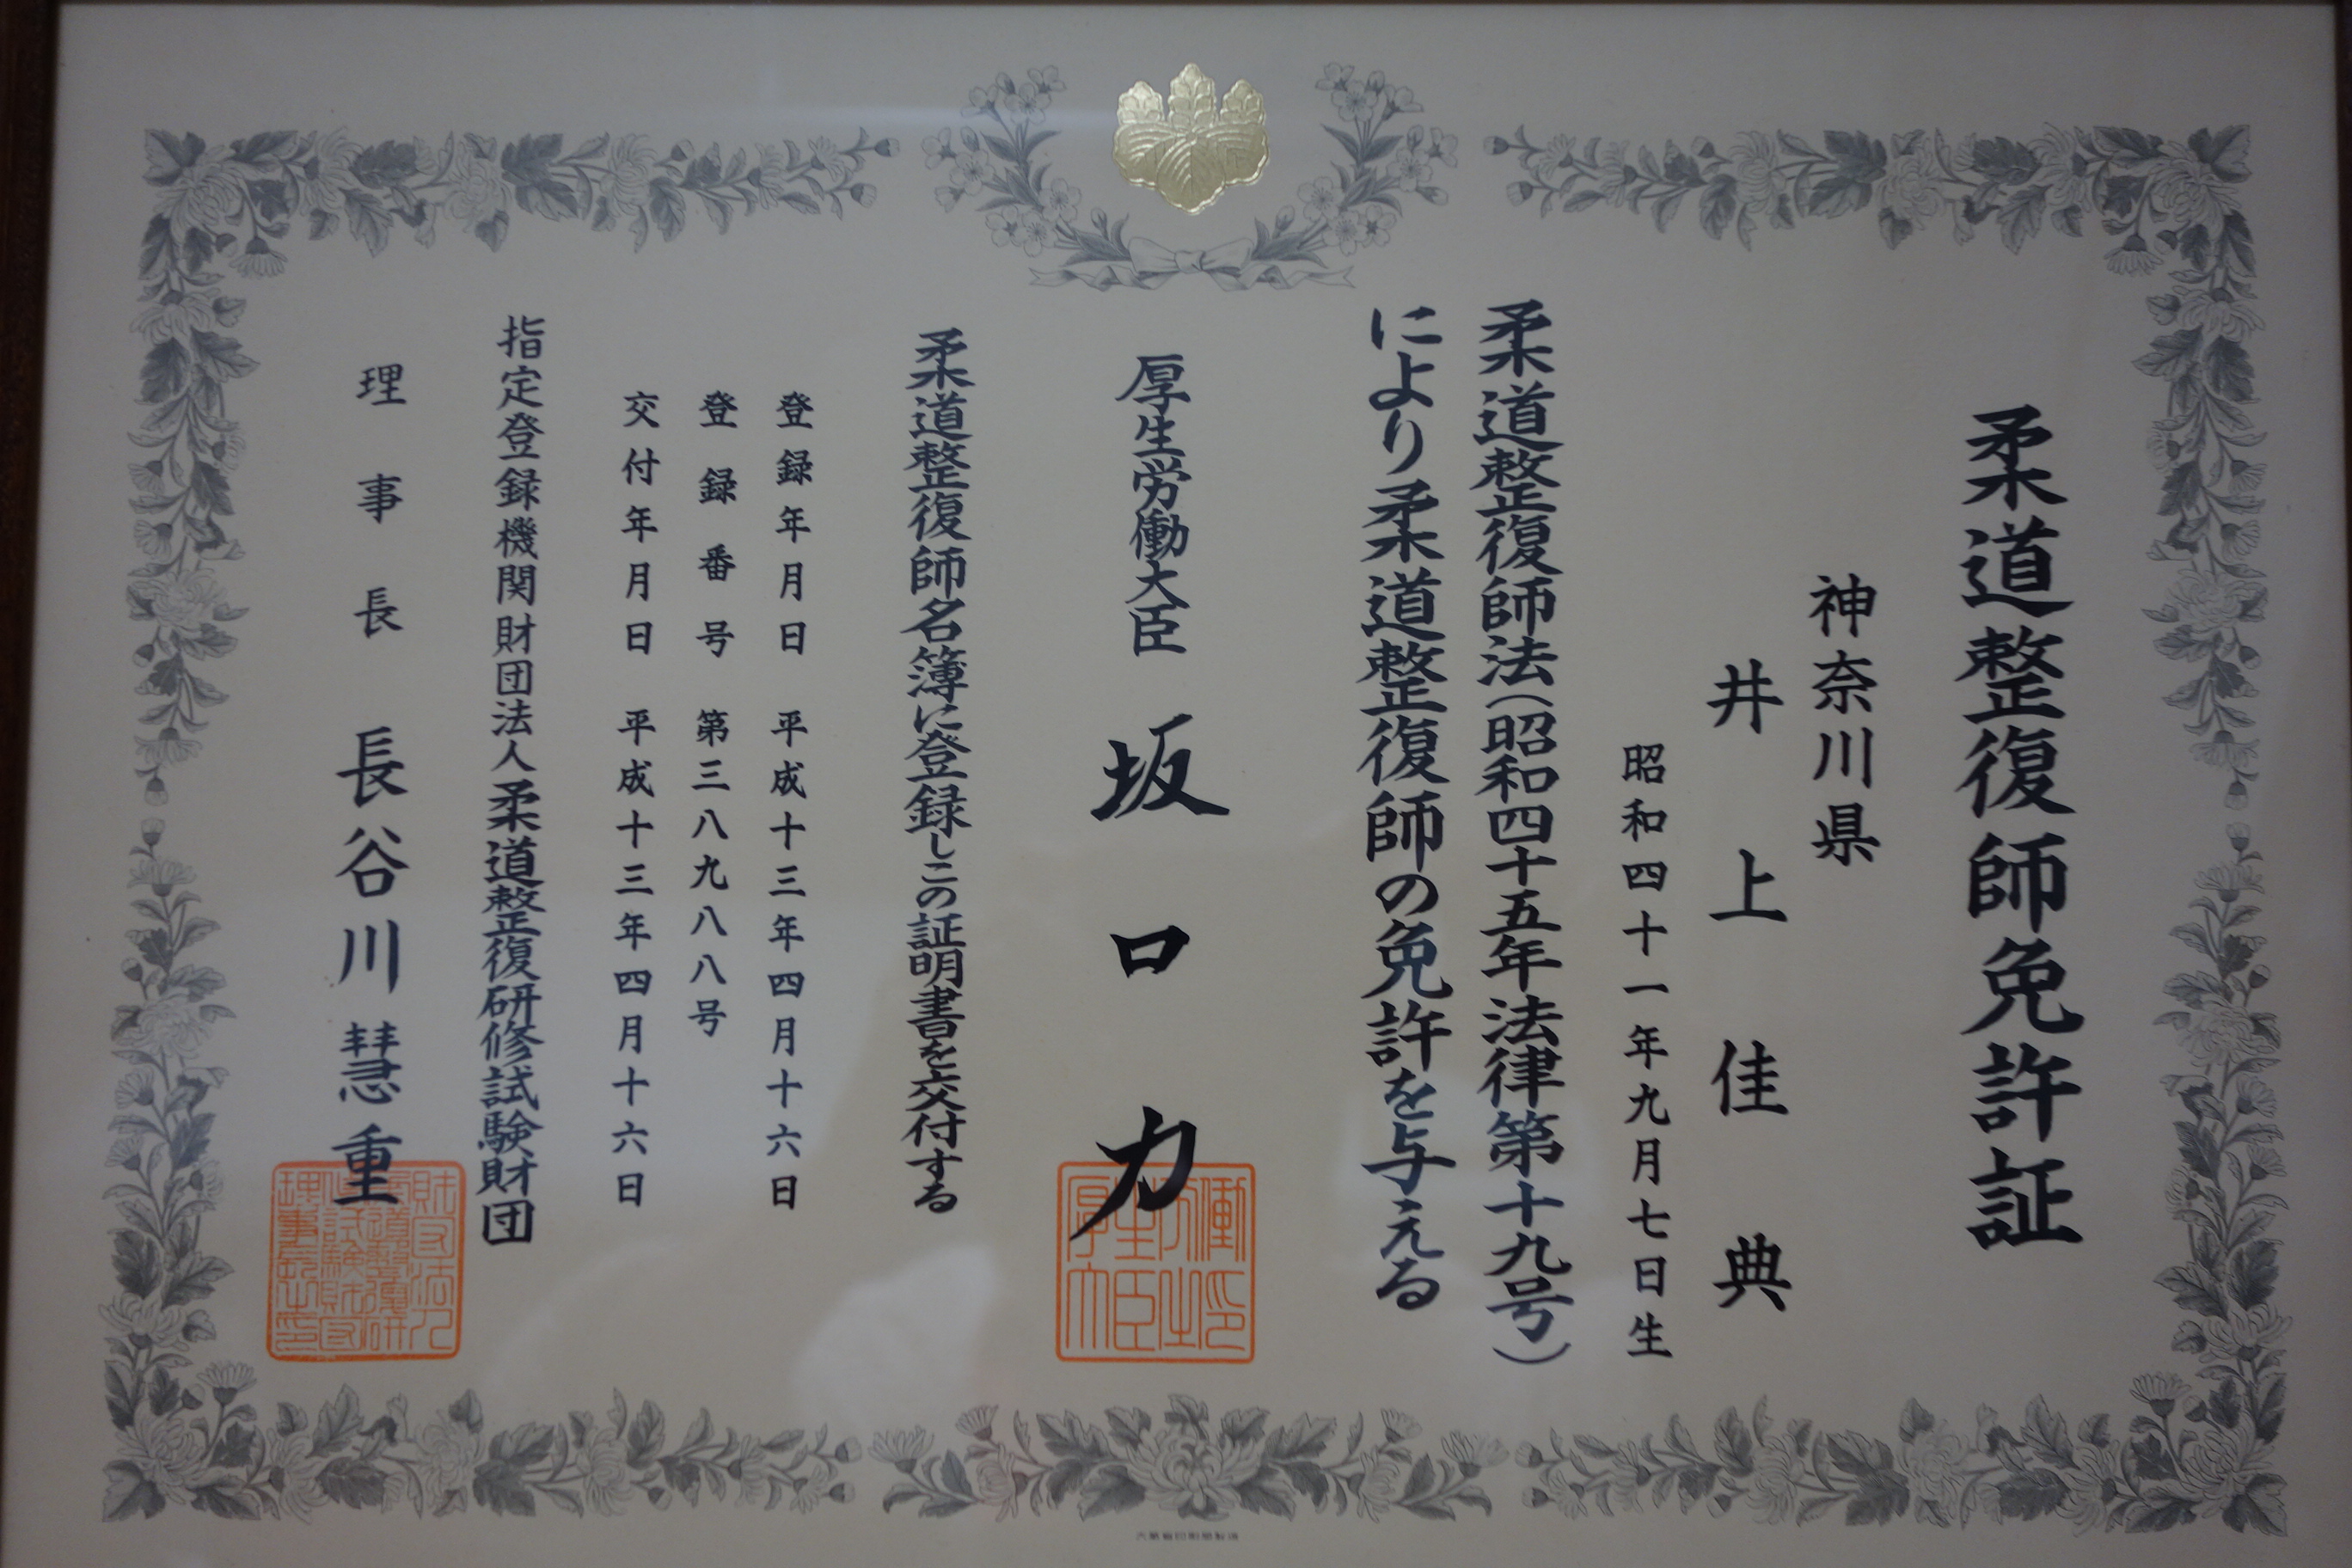 柔道整復師免許証
神奈川県
井上佳典
昭和四十一年九月七日生
柔道整復師法(昭和四十五年法律第十九号)
により柔道整復師の免許を与える
厚生労働大臣 坂口力
柔道整復師名簿に登録しこの証明書を交付する
登録年月日 平成十三年四月十六日
登録番号 第三八九八八号
交付年月日 平成十三年四月十六日
指定登録機関財団法人柔道整復研修試験財団
理事長 長谷川慧重